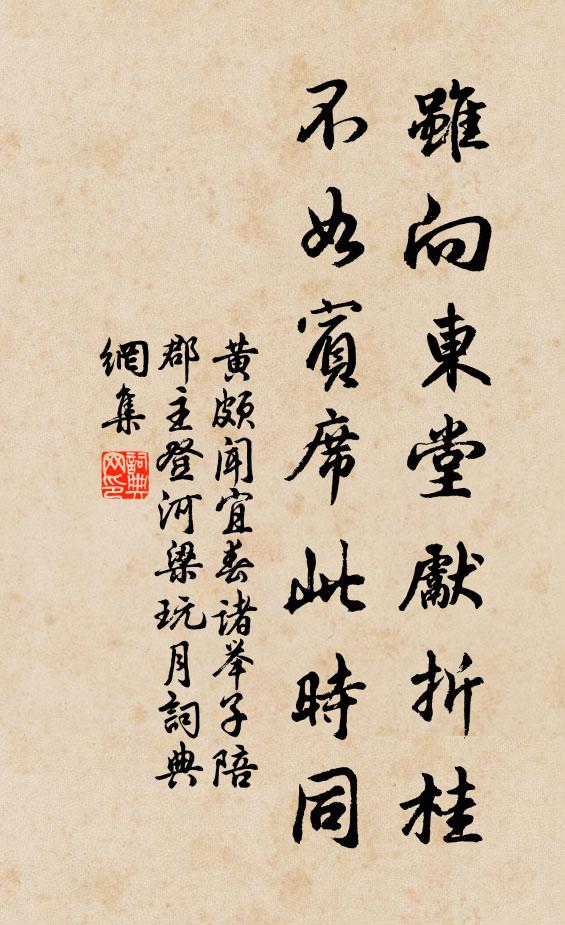 雖向東堂獻折桂
不如賓席此時同
黃頗聞宜春諸举子陪
郡主登河梁玩月詞典
網集
詞典
网印